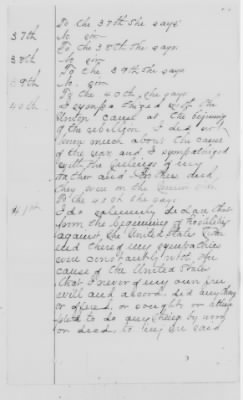 To the 37th she says
37th No sir
To the 38th she says
38th No sir
To the 39th she says
39th No. sir
To the 40th, she says
40th I sympathized with the
Union cause at the beginning
of the rebellion I did not
know much about the cause
of the war and I sympathized
with the feelings of my
father and brothers and
they were on the Union side
To the 41st she says
41st I do solemnly declare that
from the beginning of hostilities
against the United States to the
end thereof my sympathies
were constantly with the
cause of the United States
that I never of my own free
will and accord did anything
or offered, or sought or attempt
to do anything by word
or deed, to injure said